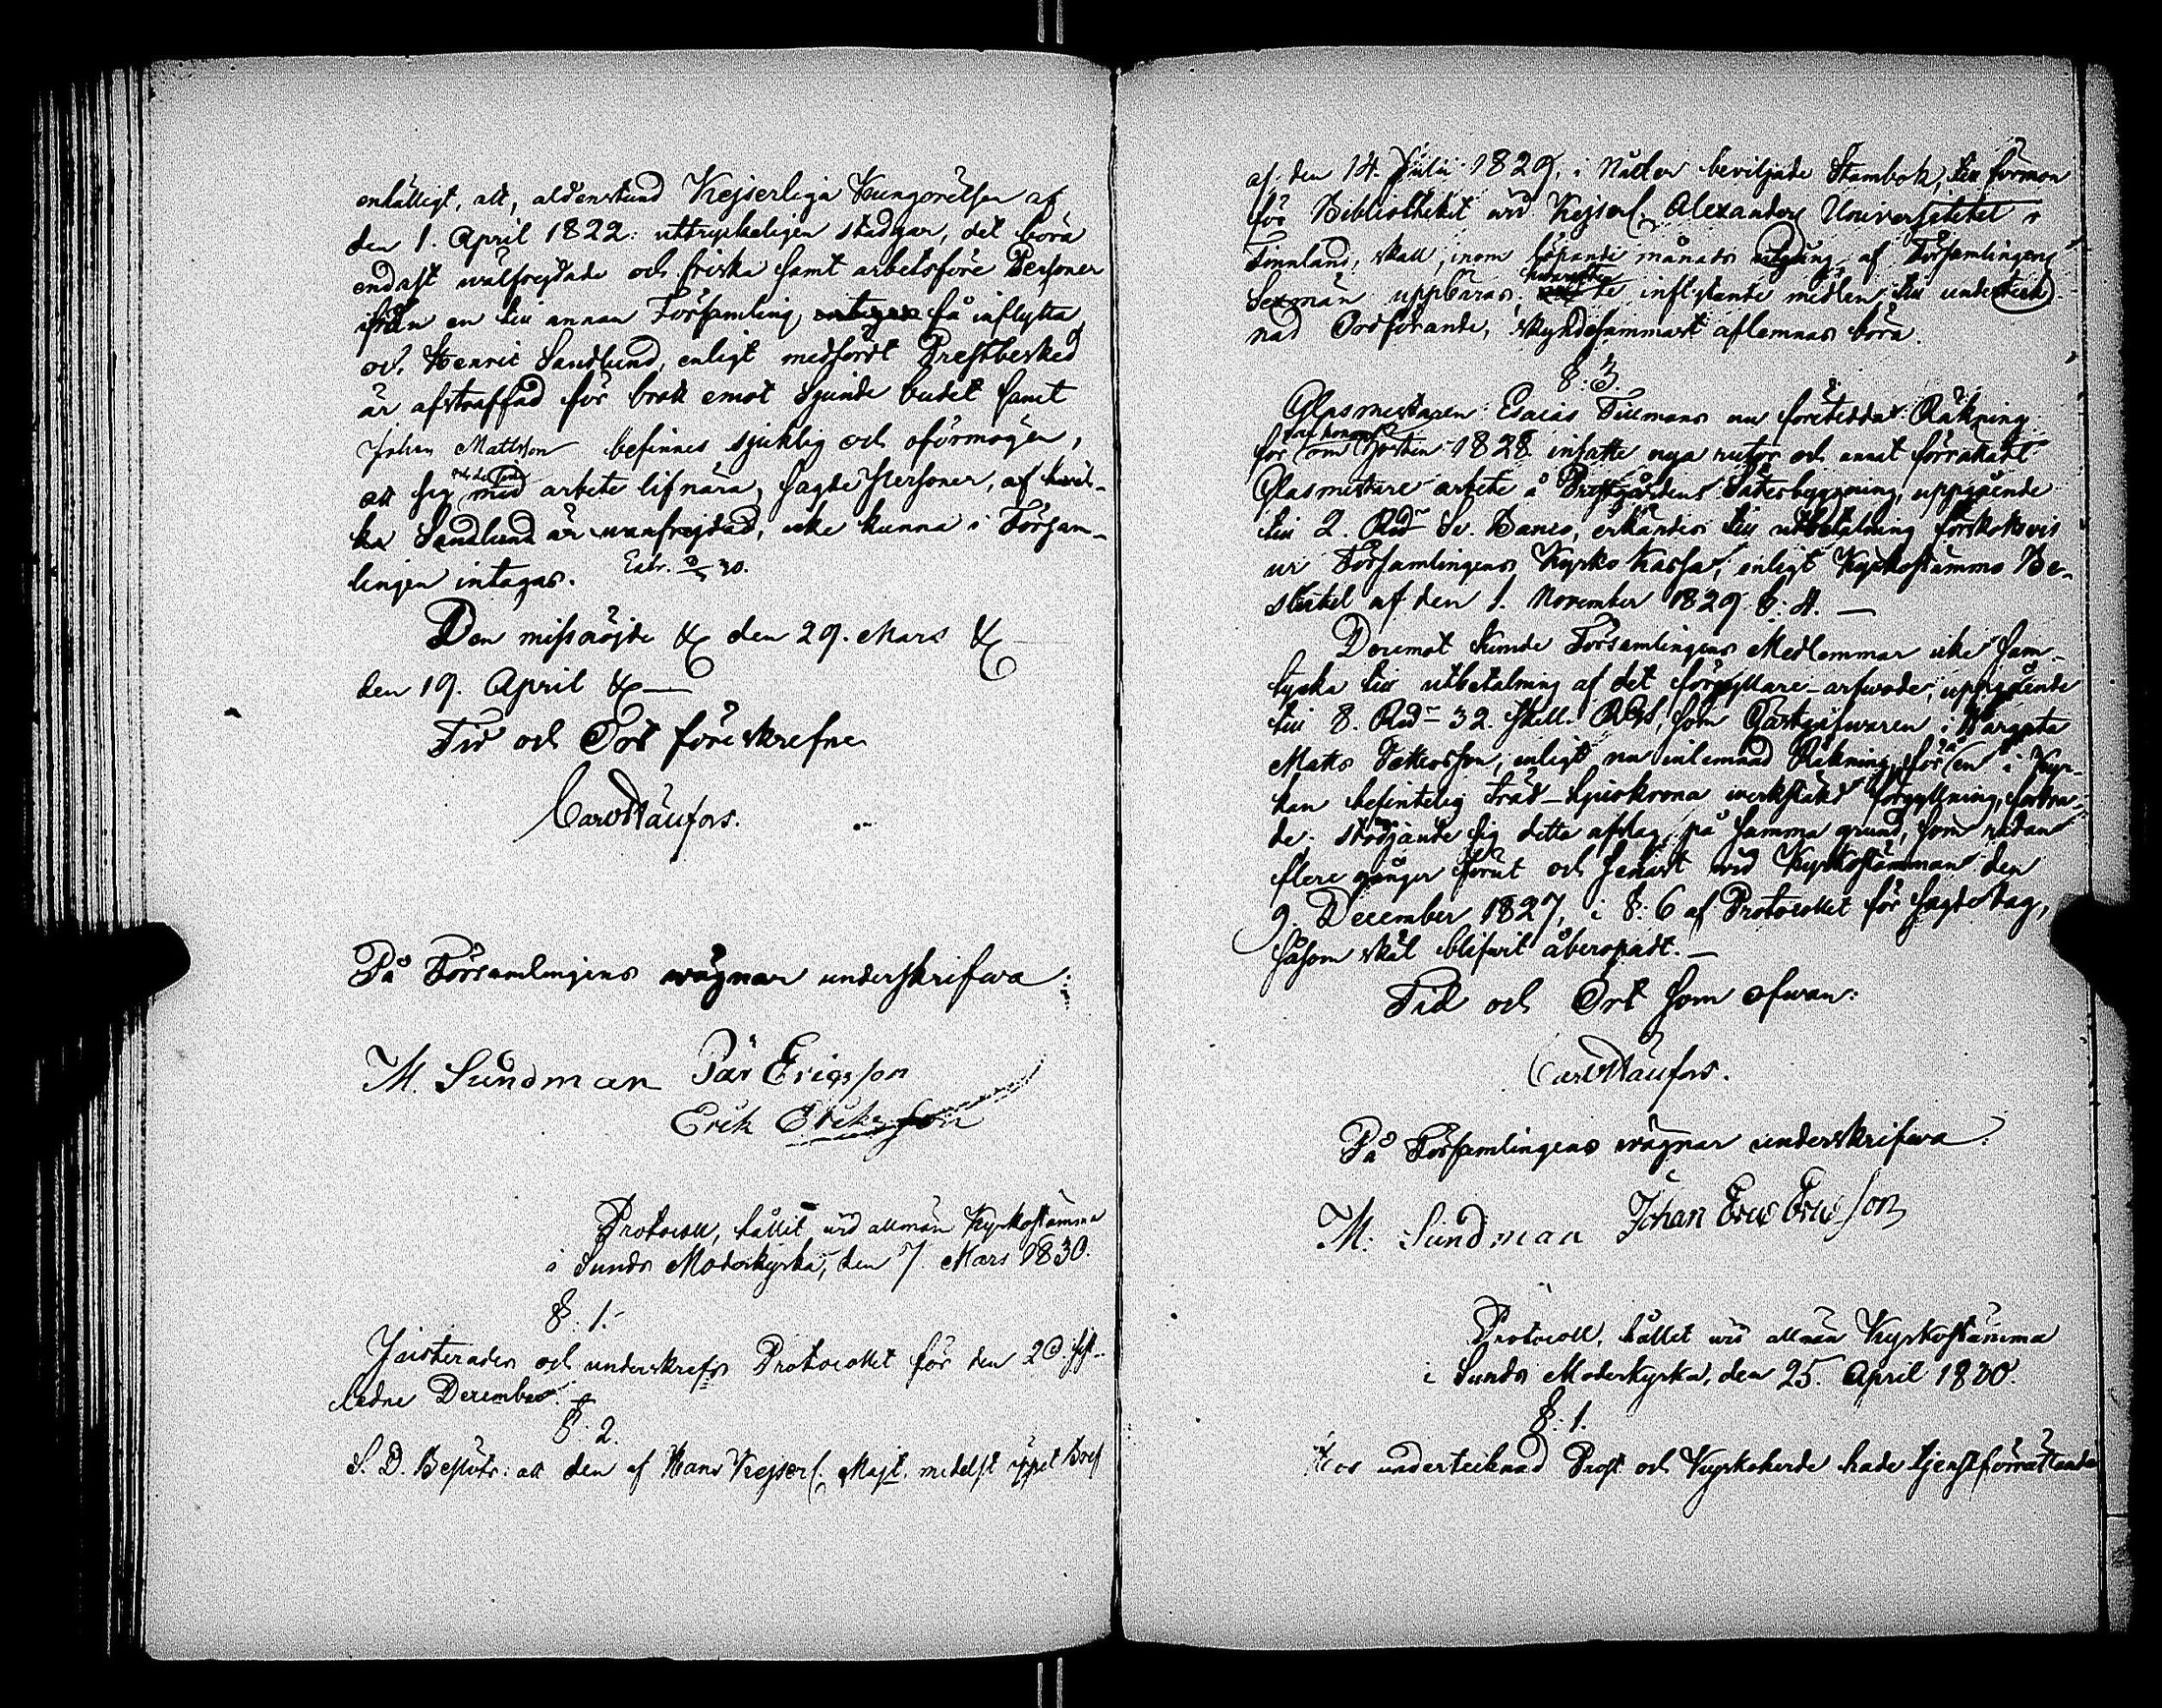 enhälligt, att, aldenstund Kejserliga Kungörelsen af
den 1. April 1822: uttryckeligen stadgar, det böra
endast wälfrejdade och friska samt arbetsföre Personer
ifrån en till annan Församling, få inflytta
och Henric Sandlund, enligt medfördt Prestbesked
är afstraffad för brott emot Sjunde budet samt
Johan Mattsson befinnes sjuklig och oförmögen,
att sig med arbete lifnära, sagde Personer, af hwil-
ka Sandlund är wanfrejdad, icke kunna i Försam-
lingen intagas. Extr. 30.
Den missnöjde &c den 29. Mars &c
den 19. April &c —
Tid och Ort föreskrefne
På Församlingens wägnar underskrifwa:
M. Sundman Pär Ericsson
Erik Eriksson
Protocoll, hållit wid allmän Kyrkostämma
i Sunds Moderkyrka, den 7. Mars 1830.
§. 1.
Justerades och underskrefs Protocollet för den 20. sist-
ledne December.
§. 2.
S. D. Beslöts: att den af Hans Kejserl. Majt. medelst öppet Bref
af den 14. Julii 1829, i Nåder beviljade Stambok, till förmon
för Bibliotheket wid Kejserl. Alexanders Universitetet i
Finnland, skall, inom löpande månads utgång, af Församlingens
Sexmän uppbäras, inflytande medlen till underteck-
nad Ordförande, skyndesammast aflemnas böra.
§. 3.
Glasmästaren Esaias Tillmans nu företeddat Räkning
för om Hösten 1828 insatte nya rutor och annat förrättadt
Glasmästare arbete å Prestgårdens Sätesbyggning, uppgående
till 2. Rdr Sv. Banco, erkändes till utbetalning förskottsvis
ur Församlingens Kyrko Kassa, enligt Kyrkostämmo Be-
slutet af den 1. November 1829 §. 4. —
Deremot kunde Församlingens Medlemmar icke sam-
tycka till utbetalning af det förgyllare-arfwode, uppgående
till 8. Rdr 32. Skill. RGs, som Gästgifwaren i Wargata
Matts Pettersson, enligt nu inlemnad Räkning, för en i Kyr-
kan befintelig träd-Ljuskrona werkstäld förgyllning, fordra-
de; stödjande sig detta afslag, på samma grund, som redan
flere gånger förut och senast wid Kyrkostämman den
9. December 1827, i §. 6 af Protocollet för sagde dag,
såsom skäl blifwit åberopadt. —
Tid och Ort som ofwan:
På Församlingens wägnar underskrifwa:
M. Sundman Johan Eric Ericsson
Protocoll, hållet wid allmän Kyrkostämma
i Sunds Moderkyrka, den 25. April 1830.
§. 1.
Hos undertecknad Prost och Kyrkoherde hade tjenstförrättande